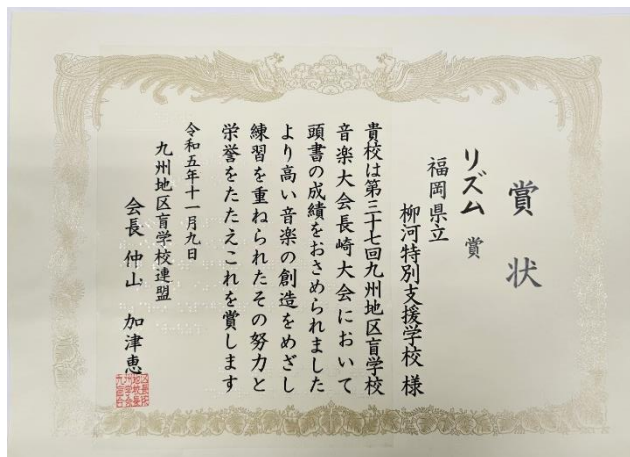 賞状
リズム賞
福岡県立
柳河特別支援学校 様
貴校は第三十七回九州地区盲学校
音楽大会長崎大会において
頭書の成績をおさめられました
より高い音楽の創造をめざし
練習を重ねられたその努力と
栄誉をたたえこれを賞します
令和五年十一月九日
九州地区盲学校連盟
会長 仲山 加津恵